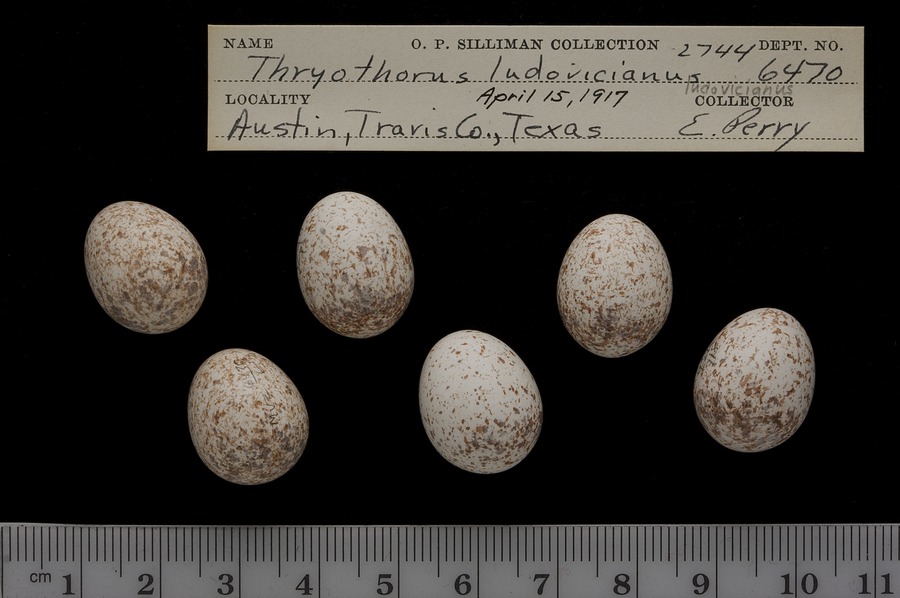 NAME O. P. SILLIMAN COLLECTION 2744 DEPT. NO.
Thryothorus ludovicianus 6470
ludovicianus
LOCALITY April 15, 1917 COLLECTOR
Austin, Travis Co., Texas E. Perry
cm 1 2 3 4 5 6 7 8 9 10 11